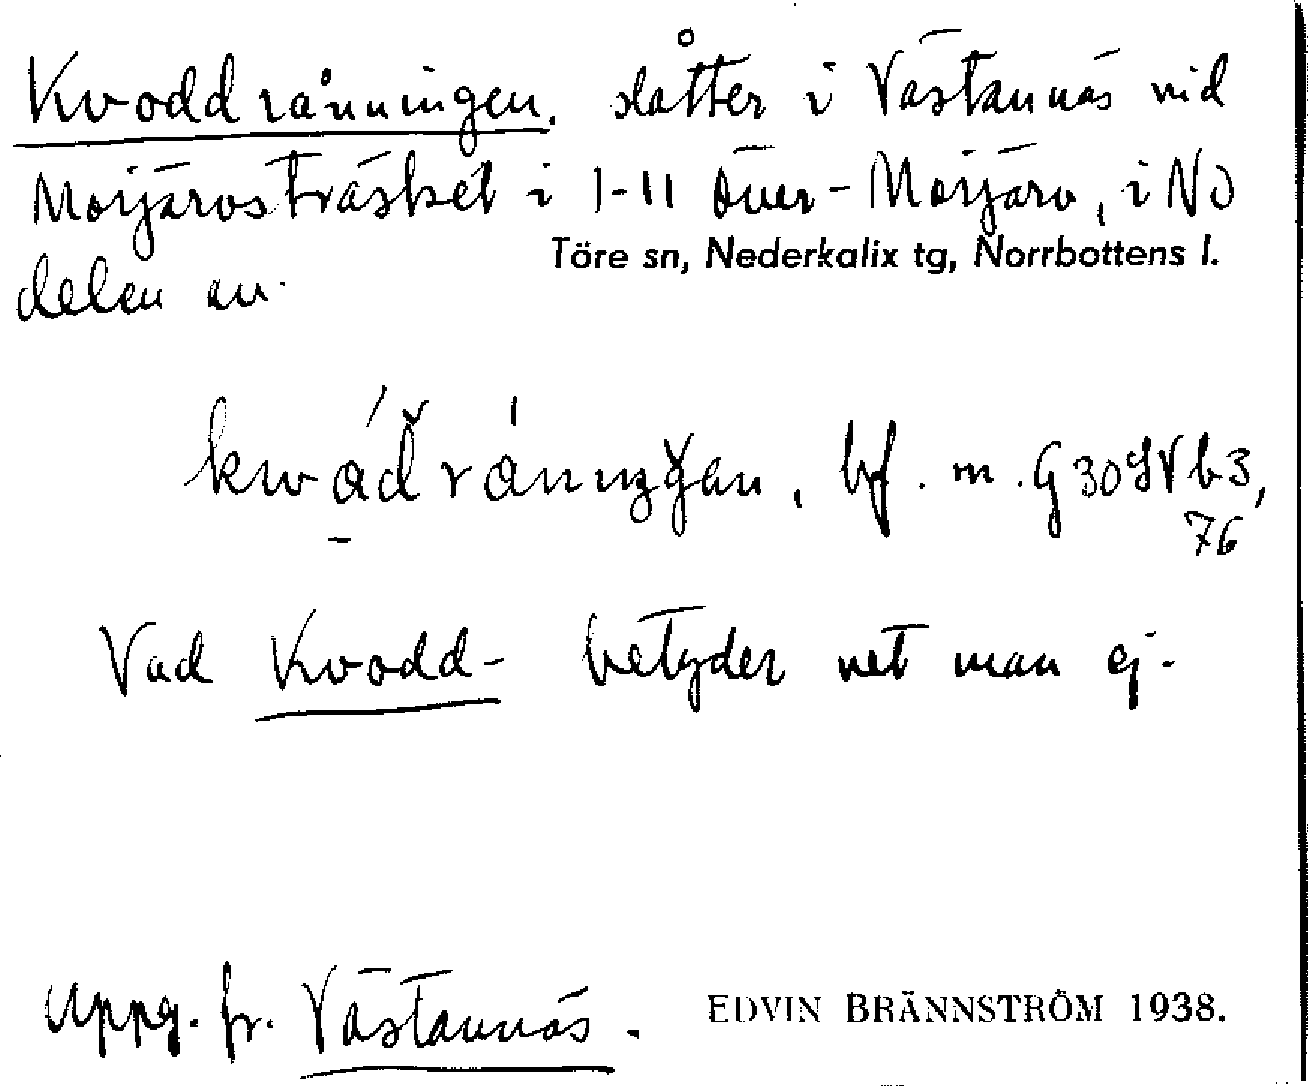 Kvoddrånningen. slåtter i Västannäs vid
Morjärvsträsket i 1-11 Över-Morjärv, i NO
Töre sn, Nederkalix tg, Norrbottens l.
delen av.
bf. m. G 30 S V b 3,
76
Vad Kvodd- betyder vet man ej.
Uppg. fr. Västannäs. EDVIN BRÄNNSTRÖM 1938.